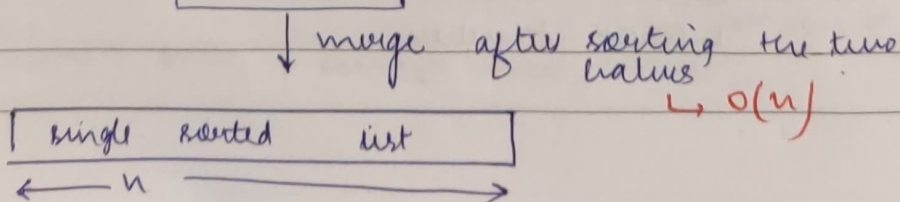 merge after sorting the two
halves
↳ O(n)
single sorted list
n